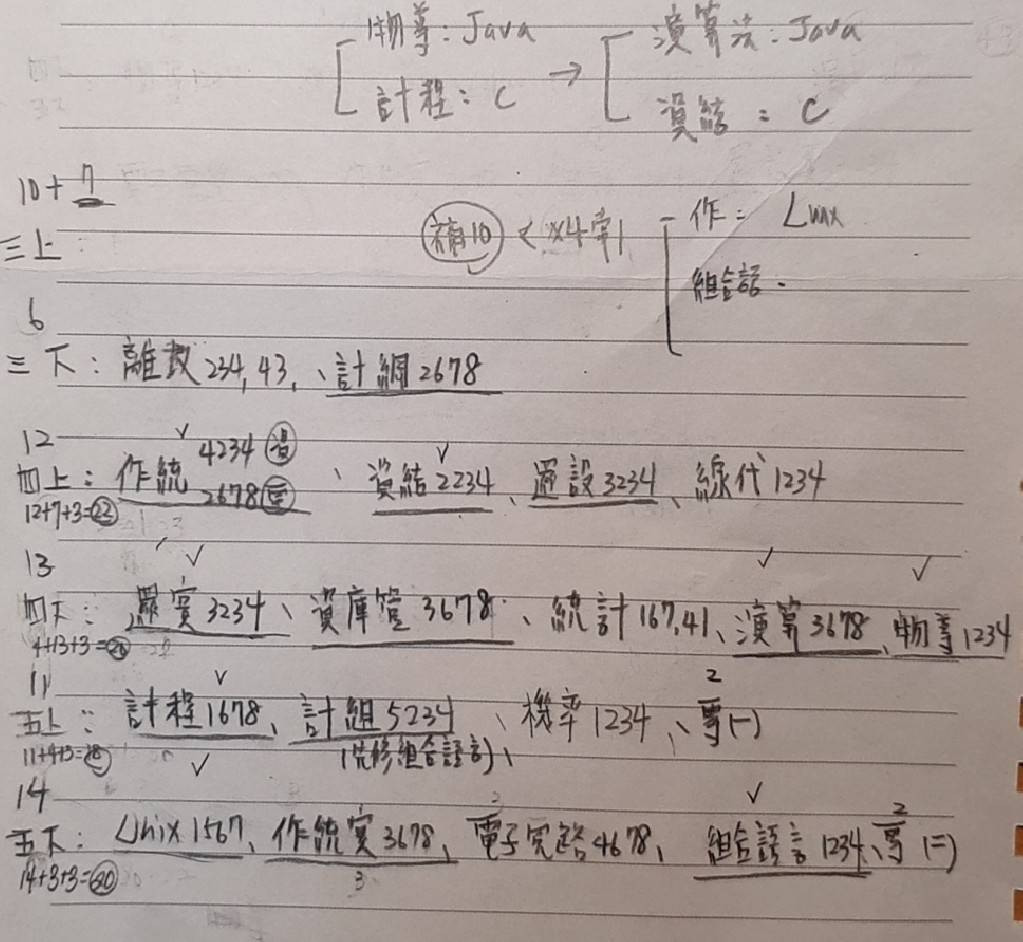 物導：Java
計程：C
→
演算法：Java
資結：C
10+7
三上：
補10 < ×4學
作：Linux
組合語．
6
三下：離散234,43、計網2678
12
四上：作統 4234 2678、資結2234、邏設3234、線代1234
12+7+3=22
13
四下：羅實3234、資庫管3678、統計167,41、演算3678、物導1234
4+13+3=20
11
五上：計程1678、計組5234、機率1234、專(一) 2
11+4+3=18
(先修組合語言)、
14
五下：Unix 1567、作統實3678、電子電路4678、組合語言1234、專(二) 2
14+3+3=20
3